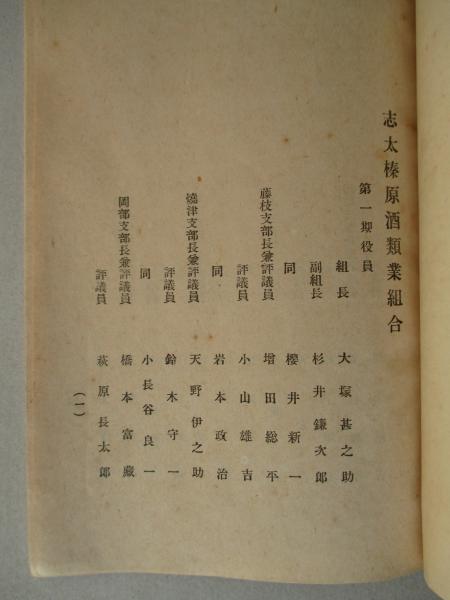 志太榛原酒類業組合
第一期役員
組長 大塚甚之助
副組長 杉井鎌次郎
同 櫻井新一
藤枝支部長兼評議員 増田総平
評議員 小山雄吉
同 岩本政治
燒津支部長兼評議員 天野伊之助
評議員 鈴木守一
同 小長谷良一
岡部支部長兼評議員 橋本富藏
評議員 萩原長太郎
(一)